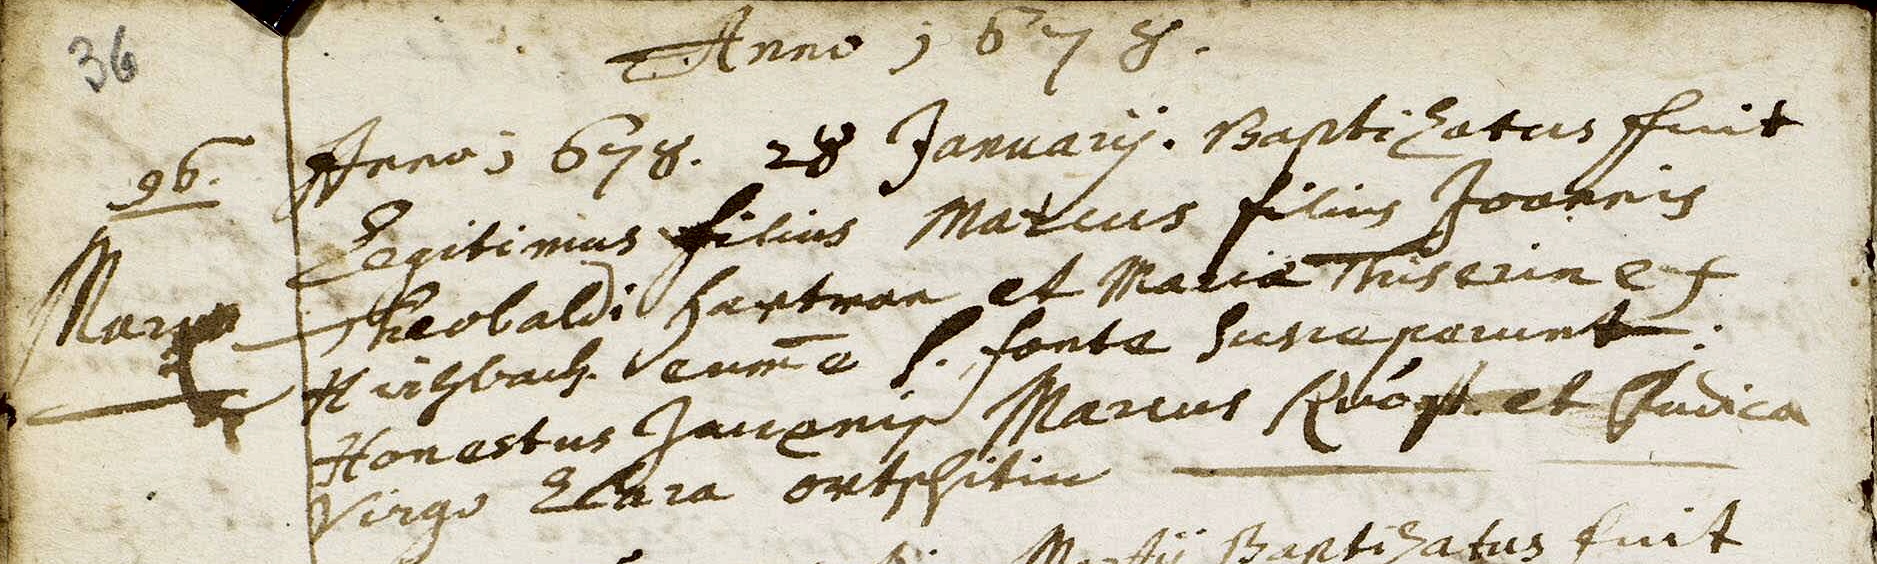 36
Anno 1678.
96. Anno 1678. 28 Januarij. Baptizatus fuit
Legitimus filius Marcus filius Joannis
Marcus Theobaldi Hartman et Maria Thiserin ex
Hirzbach. eum e S. fonte susceperunt.
Honestus Juvenis Marcus et Pudica
Virgo Clara
Baptizatus fuit